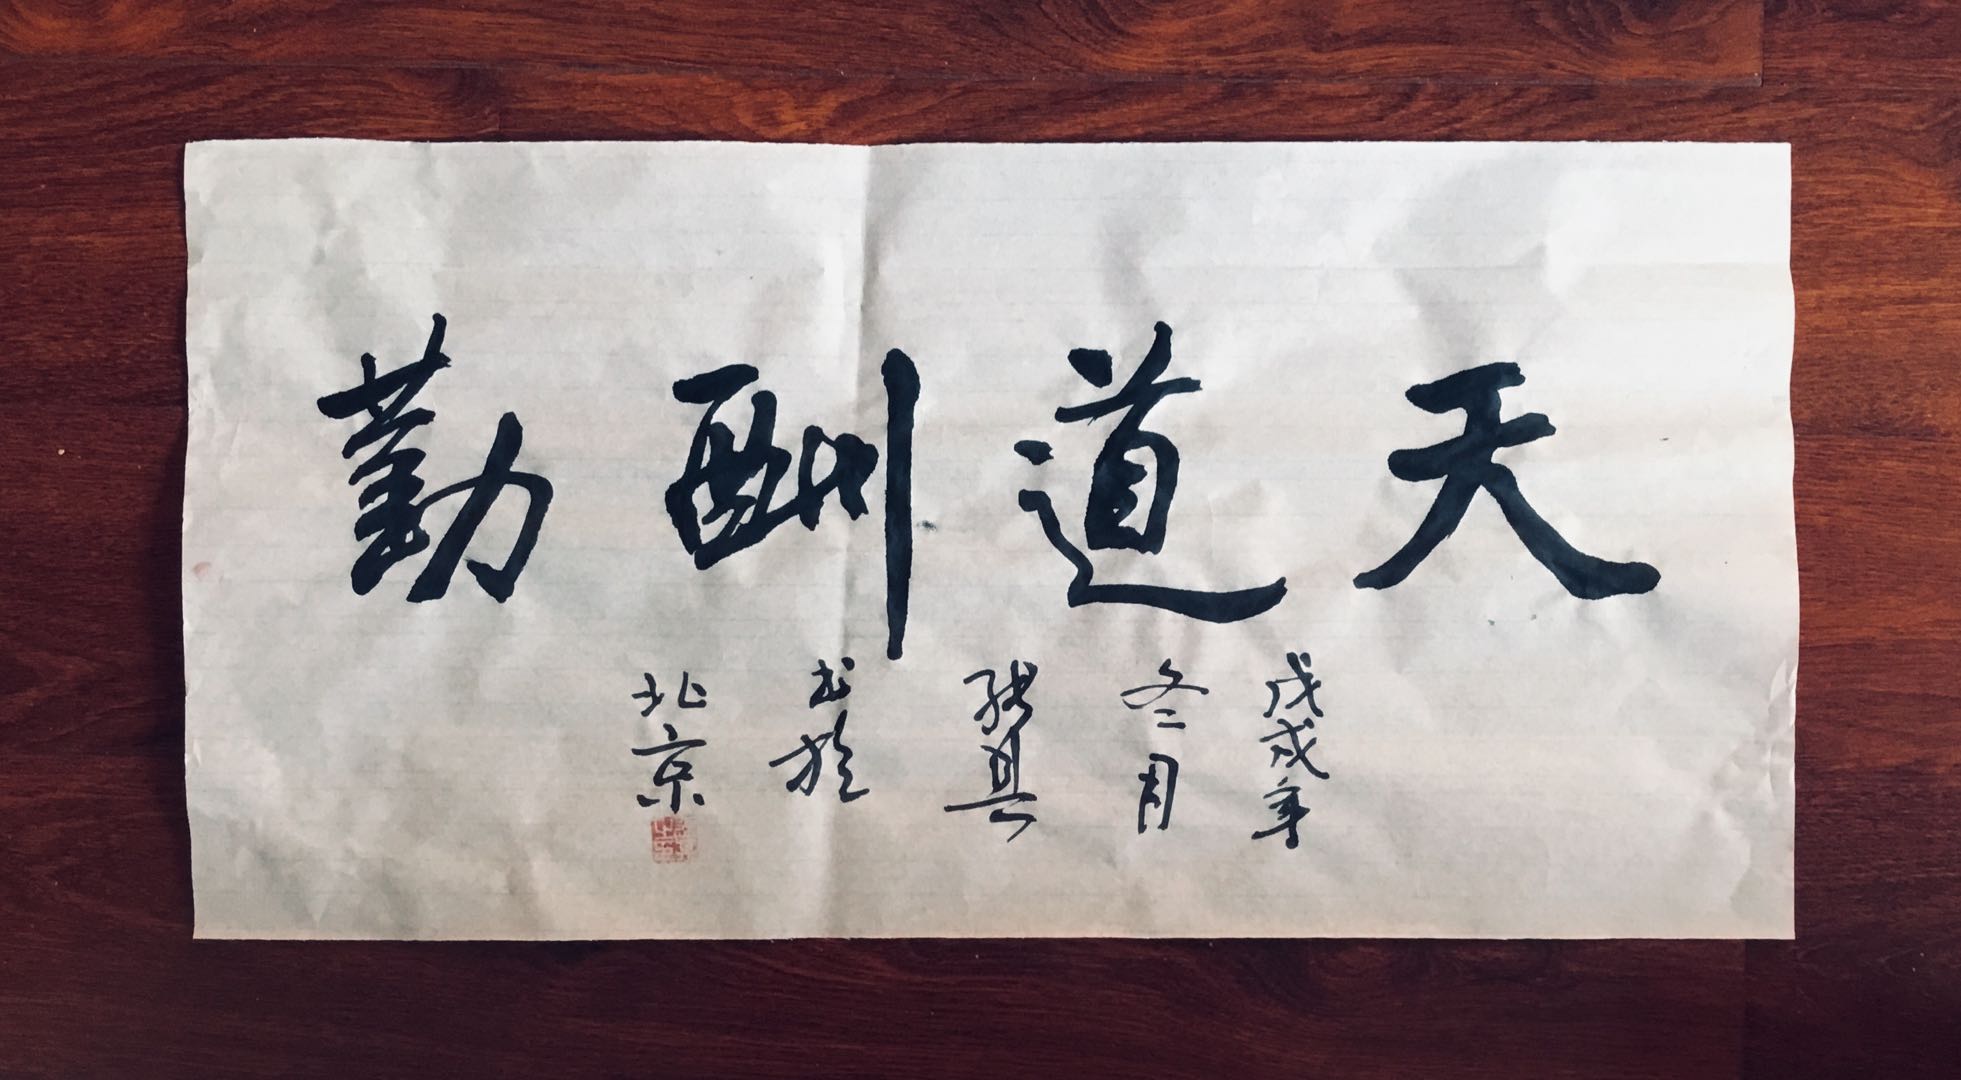 天道酬勤
戊戌年
冬月
张其
书於
北京